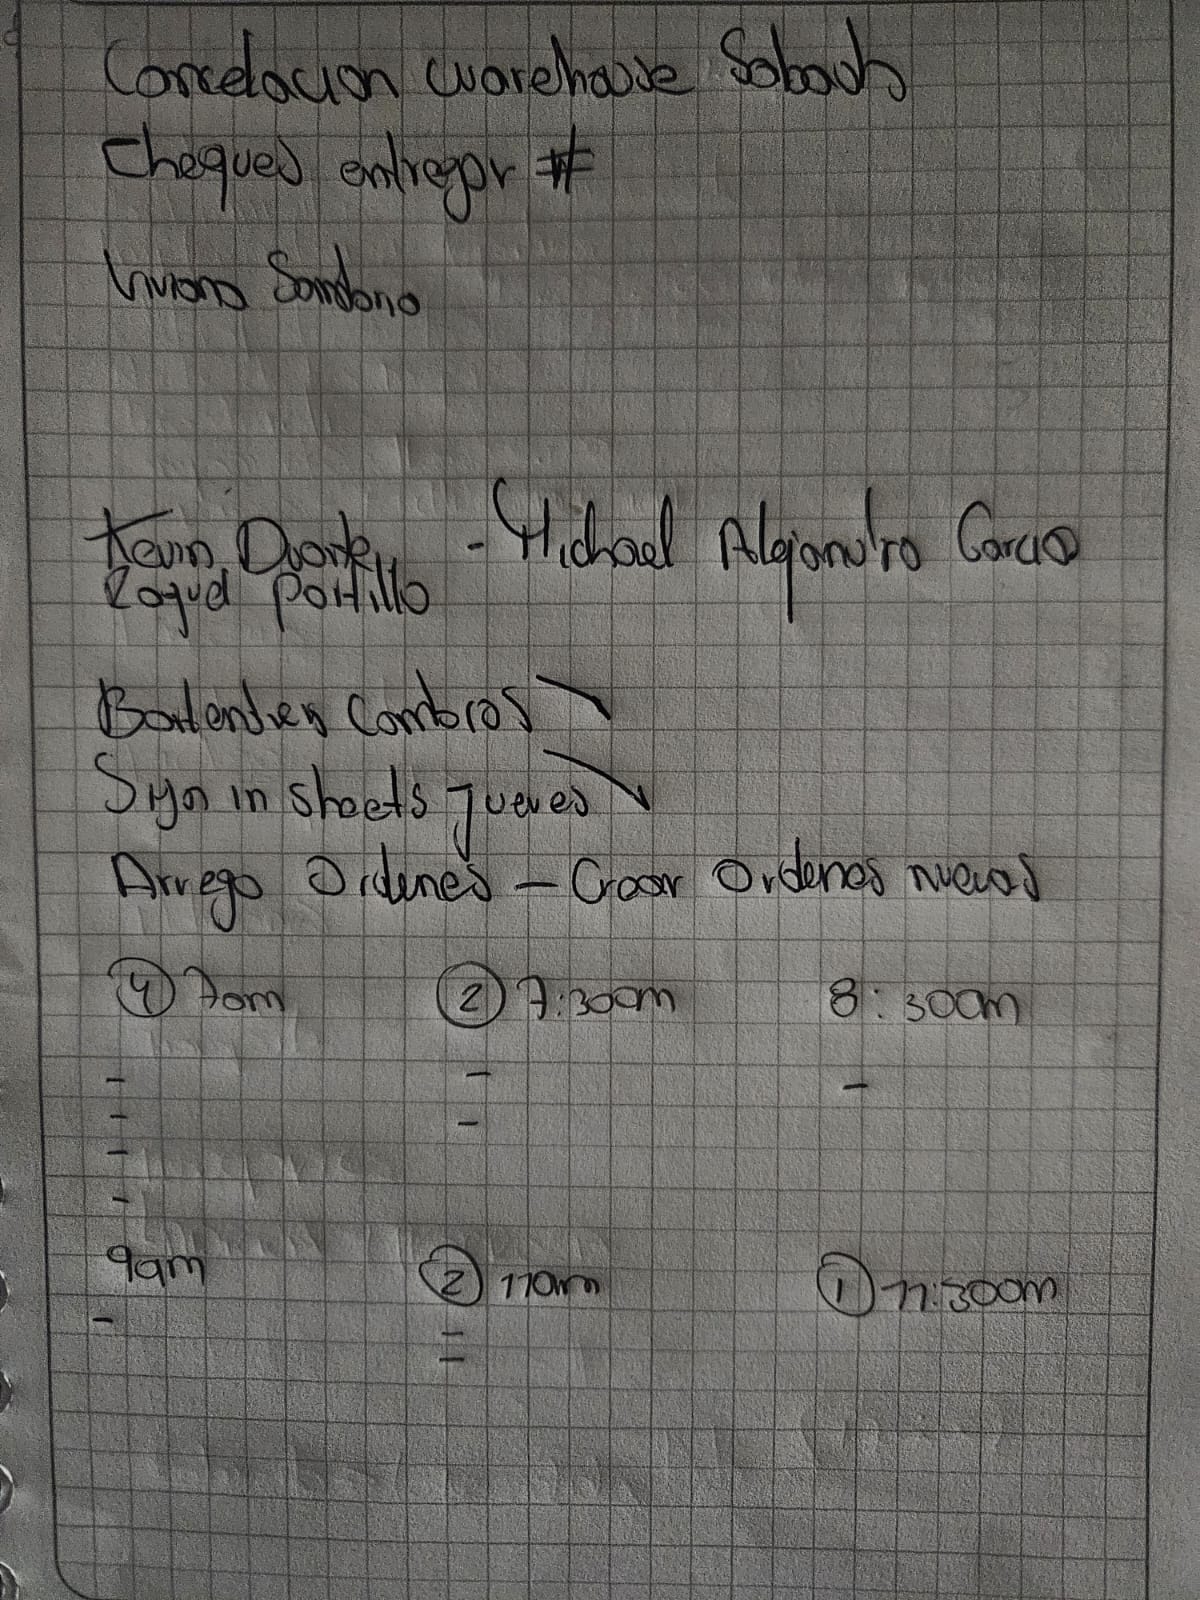 Cancelacion warehouse Sabado
Cheques entregar #
Viviana Sandono
Kevin Duarte - Michael Alejandro Garcia
Raquel Portillo
Bartenders Cambios
Sign in sheets jueves
Arrego Ordenes - Crear Ordenes nuevas
④ 7am ② 7:30am 8:30am
- - -
- -
-
-
9am ② 11am ① 11:30am
- -
-